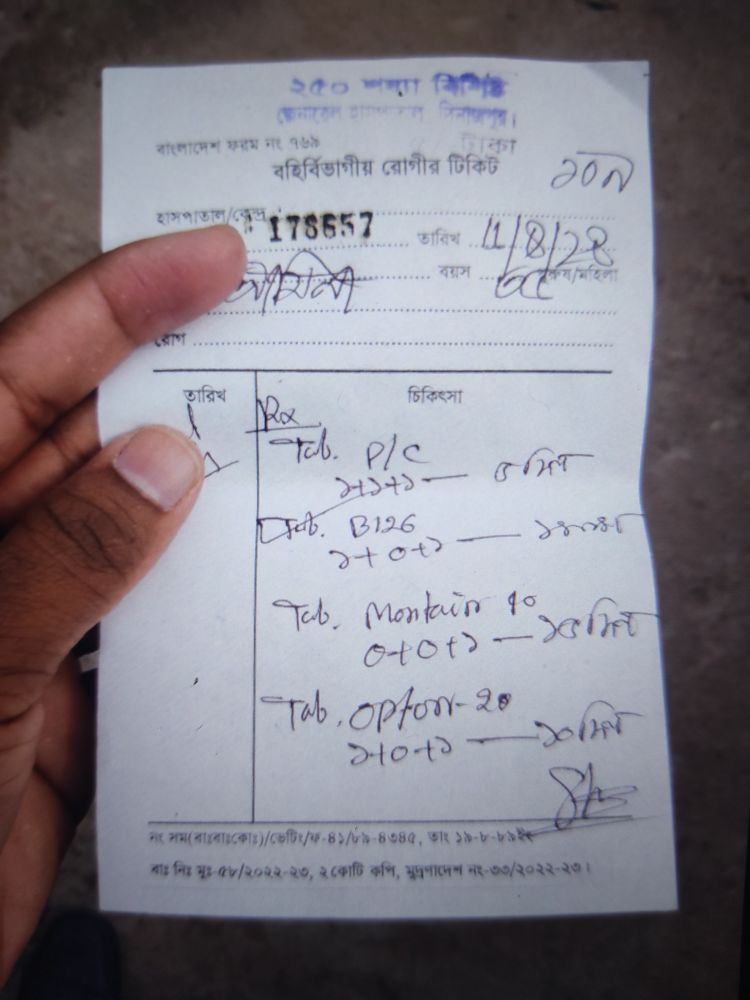 ২৫০ শয্যা বিশিষ্ট
জেনারেল হাসপাতাল, দিনাজপুর।
বাংলাদেশ ফরম নং ৭৬৯
টিকা
বহির্বিভাগীয় রোগীর টিকিট
হাসপাতাল/কেন্দ্র 178657 তারিখ
বয়স পুরুষ/মহিলা
রোগ
তারিখ চিকিৎসা
Rx
Tab. P/C
১+১+১ — ৫ দিন
Tab. B126
১+০+১ —
Tab. Montair 10
০+০+১ — ১৫ দিন
Tab. Opton-20
১+০+১ — ১০ দিন
বাঃ নিঃ মুঃ-৫৮/২০২২-২৩, ২ কোটি কপি, মুদ্রণাদেশ নং-৩৩/২০২২-২৩।